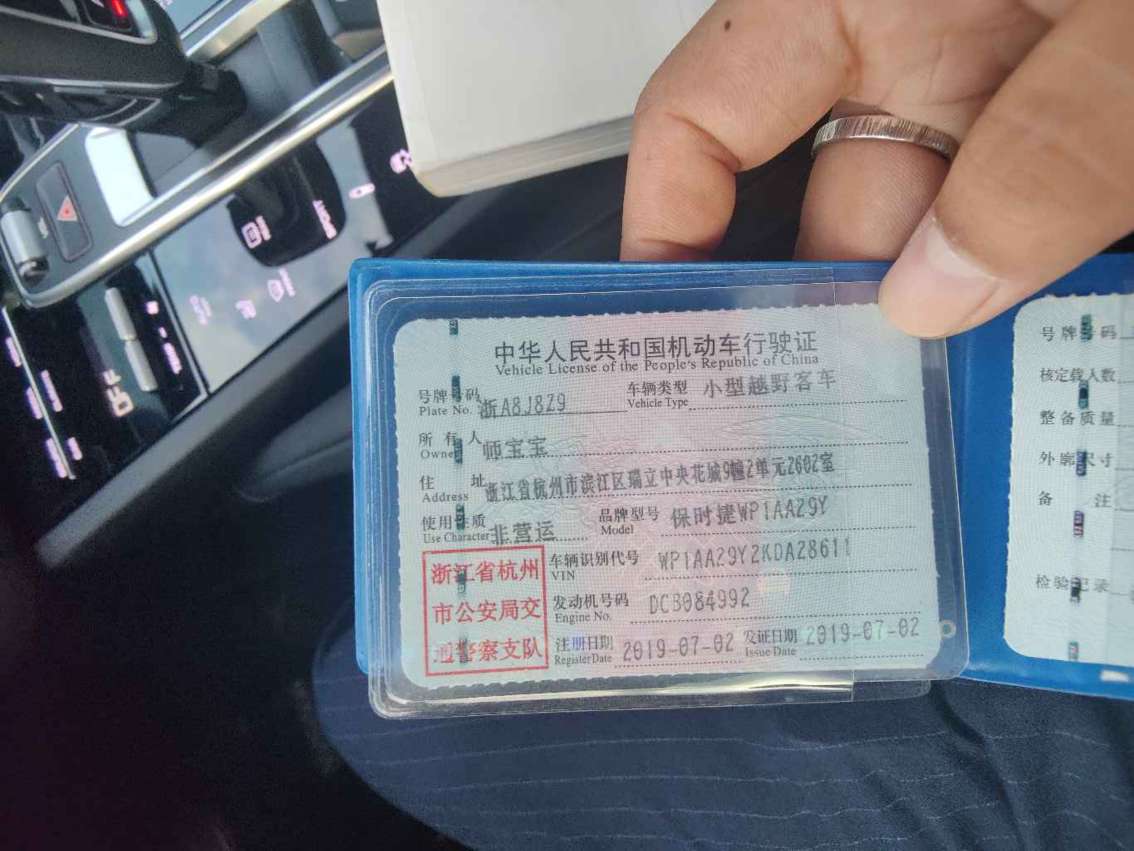 中华人民共和国机动车行驶证
Vehicle License of the People's Republic of China
号牌号码 浙A8J8Z9 车辆类型 小型越野客车
Plate No. Vehicle Type
所有人 师宝宝
Owner
住址 浙江省杭州市滨江区瑞立中央花城9幢2单元2602室
Address
使用性质 非营运 品牌型号 保时捷WP1AA29Y
Use Character Model
浙江省杭州
市公安局交
通警察支队
车辆识别代号 WP1AA29Y2KDA28611
VIN
发动机号码 DCB084992
Engine No.
注册日期 2019-07-02 发证日期 2019-07-02
Register Date Issue Date
号牌号码
核定载人数
整备质量
外廓尺寸
备注
检验记录
OFF
SPORT